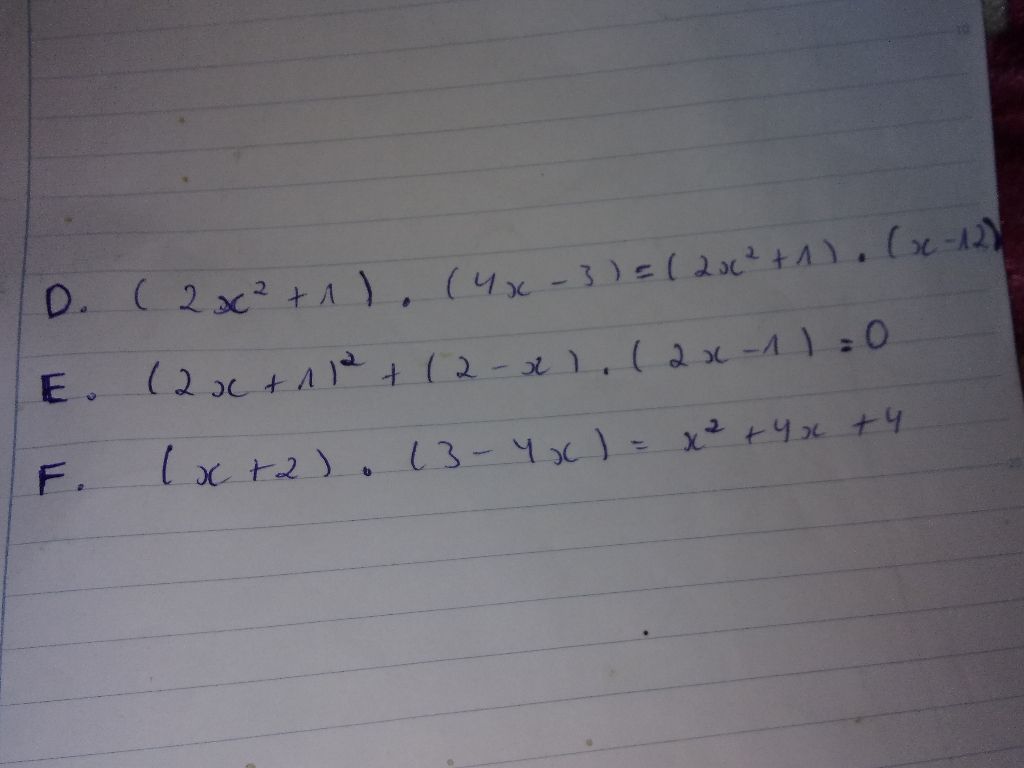 D. (2x² + 1) . (4x - 3) = (2x² + 1) . (x - 12)
E. (2x + 1)² + (2 - x) . (2x - 1) = 0
F. (x + 2) . (3 - 4x) = x² + 4x + 4